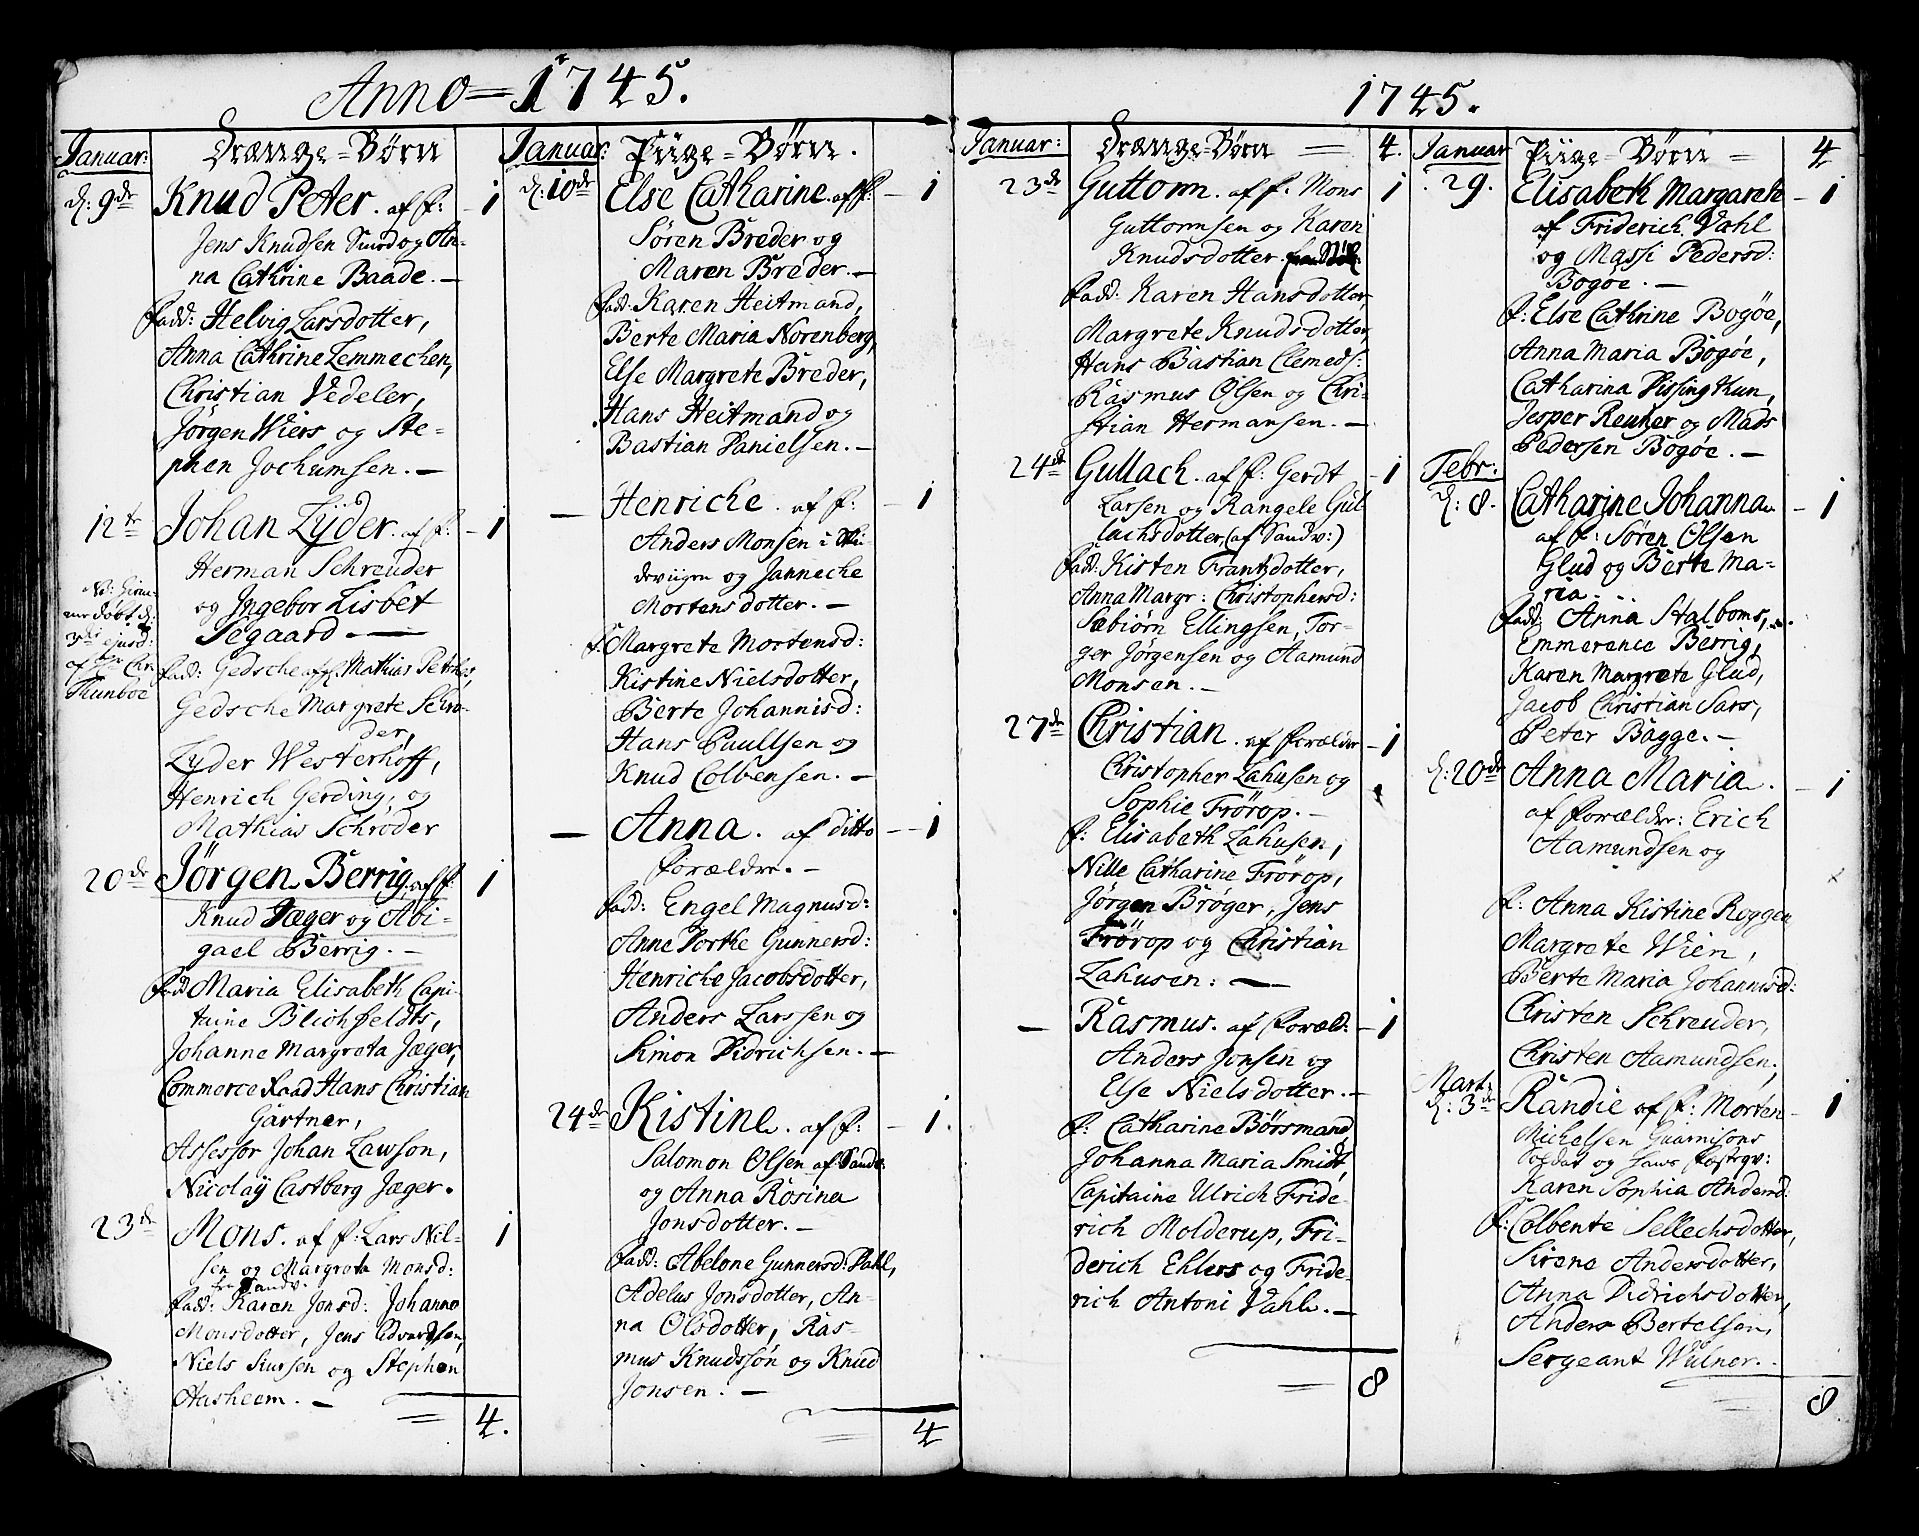 Anno = 1745.
Januar:
Drænge=Børn
d: 9de Knud Peter. af f: - 1
Jens Knudsen Smed og An-
na Cathrine Baade. -
fadd: Helvig Larsdotter,
Anna Cathrine Lemmechen,
Christian Vedeler,
Jørgen Wiers og Ste-
phen Jochumsen. -
12te Johan Lyder. af f: - 1
Herman Schreuder
og Ingebor Lisbet
Segaard -
døbt d:
3de ejusd:
Thunboe
fadd: Gedsche af f. Mathias Peters,
Gedsche Margrete Schrø-
der,
Lyder Westerhoff,
Henrich Gerding, og
Mathias Schrøder
20de Jørgen Berrig, af f: 1
Knud Jæger og Abi-
gael Berrig. -
fadd Maria Elisabeth Capi-
taine Blichfeldts,
Johanne Margreta Jæger,
Commerce Raad Hans Christian
Gärtner,
Assessor Johan Lawson,
Nicolaÿ Castberg Jæger.
23de Mons. af f: Lars Nil- 1
sen og Margreta Monsd:
fra Sandv:
fadd: Karen Jonsd: Johanne
Monsdotter, Jens Edvardsen,
Niels Siursen og Stephen
Aasheem. -
= 4.
Januar:
Piige=Børn.
d: 10de Else Catharine. af f: - 1
Søren Breder og
Maren Breder. -
fadd: Karen Heitmand,
Berte Maria Norenberg,
Else Margrete Breder,
Hans Heitmand og
Bastian Danielsen. -
- Henriche. af f: - 1
Anders Monsen i Ski-
devigen og Jannecke
Mortensdotter. -
f: Margrete Mortensd:
Kistine Nielsdotter,
Berte Johannisd:
Hans Paullsen og
Knud Colbensen. -
- Anna. af ditto - - 1
forældre. -
fadd: Engel Magnusd:
Anne Dorthe Gunnersd:
Henriche Jacobsdotter,
Anders Larssen og
Simon Didrichsen. -
24de Kistine. af f: - 1.
Salomon Olsen af Sandv:
og Anna Rosina
Jonsdotter. -
fadd: Abelone Gunnersd: Dahl,
Adelus Jonsdotter, An-
na Olsdotter, Ras-
mus Knudssøn og Knud
Jonsen. -
= 4
1745.
Januar:
Drænge=Børn = 4.
23de Guttorm. af f: Mons 1
Guttormsen og Karen
Knudsdotter.
fadd: Karen Hansdotter,
Margrete Knudsdotter,
Hans Bastian Clemeds:
Rasmus Olsen og Chri-
stian Hermansen. -
24de Gullach. af f: Gerdt - 1
Larsen og Rangele Gul-
lachsdotter, (af Sandv:)
fadd: Kisten Frantzdotter,
Anna Margr: Christophersd:
Sæbiørn Ellingsen, Tor-
ger Jørgensen og Aamund
Monsen. -
27de Christian. af forælder - 1
Christopher Lahusen og
Sophie Frörop. -
f: Elisabeth Lahusen,
Nille Catharine Frörop,
Jørgen Brøger, Jens
Frörop og Christian
Lahusen: -
- Rasmus. af foræld: - 1
Anders Jonsen og
Else Nielsdotter. -
f: Catharine Börsmand,
Johanna Maria Smidt,
Capitaine Ulrich Fride-
rich Molderup, Fri-
derich Ehlers og Fride-
rich Antoni Vahl. -
= 8
Januar
Piige=Børn = 4
29. Elisabeth Margarete - 1
af Friderich Vahl
og Massi Pedersd:
Bogøe. -
f: Else Cathrine Bogöe,
Anna Maria Bogöe,
Catharina Dissingthun,
Jesper Reuser og Mads
Pedersen Bogøe. -
Febr:
d: 8. Catharine Johanna - 1
af f: Søren Olsen
Glud og Berte Ma-
ria.
fadd: Anna Stalboms,
Emmerence Berrig,
Karen Margrete Glud,
Jacob Christian Sars,
Peter Bagge. -
d: 20de Anna Maria. - 1
af forældre: Erich
Aamundsen og
f: Anna Kistine Roggen
Margrete Wien,
Berte Maria Johannisd:
Christen Schreuder,
Christen Aamundsen,
Mart:
d: 3de Randie af f: Morten - 1
Michelsen Guarnisons
Soldat og hans fæstqv:
Karen Sophia Andersd:
f: Colbente Sellechsdotter,
Sirene Andersdotter,
Anna Didrichsdotter,
Anders Bertelsen,
Sergeant Wulner.
= 8